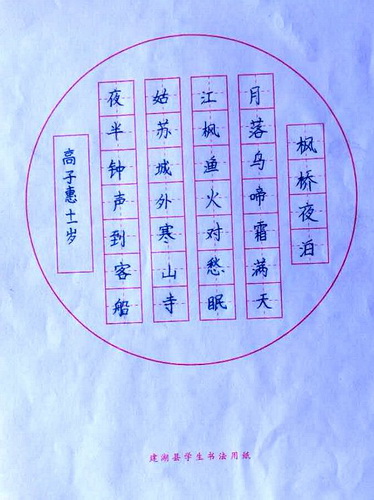 枫桥夜泊
月落乌啼霜满天
江枫渔火对愁眠
姑苏城外寒山寺
夜半钟声到客船
高子惠十一岁
建湖县学生书法用纸